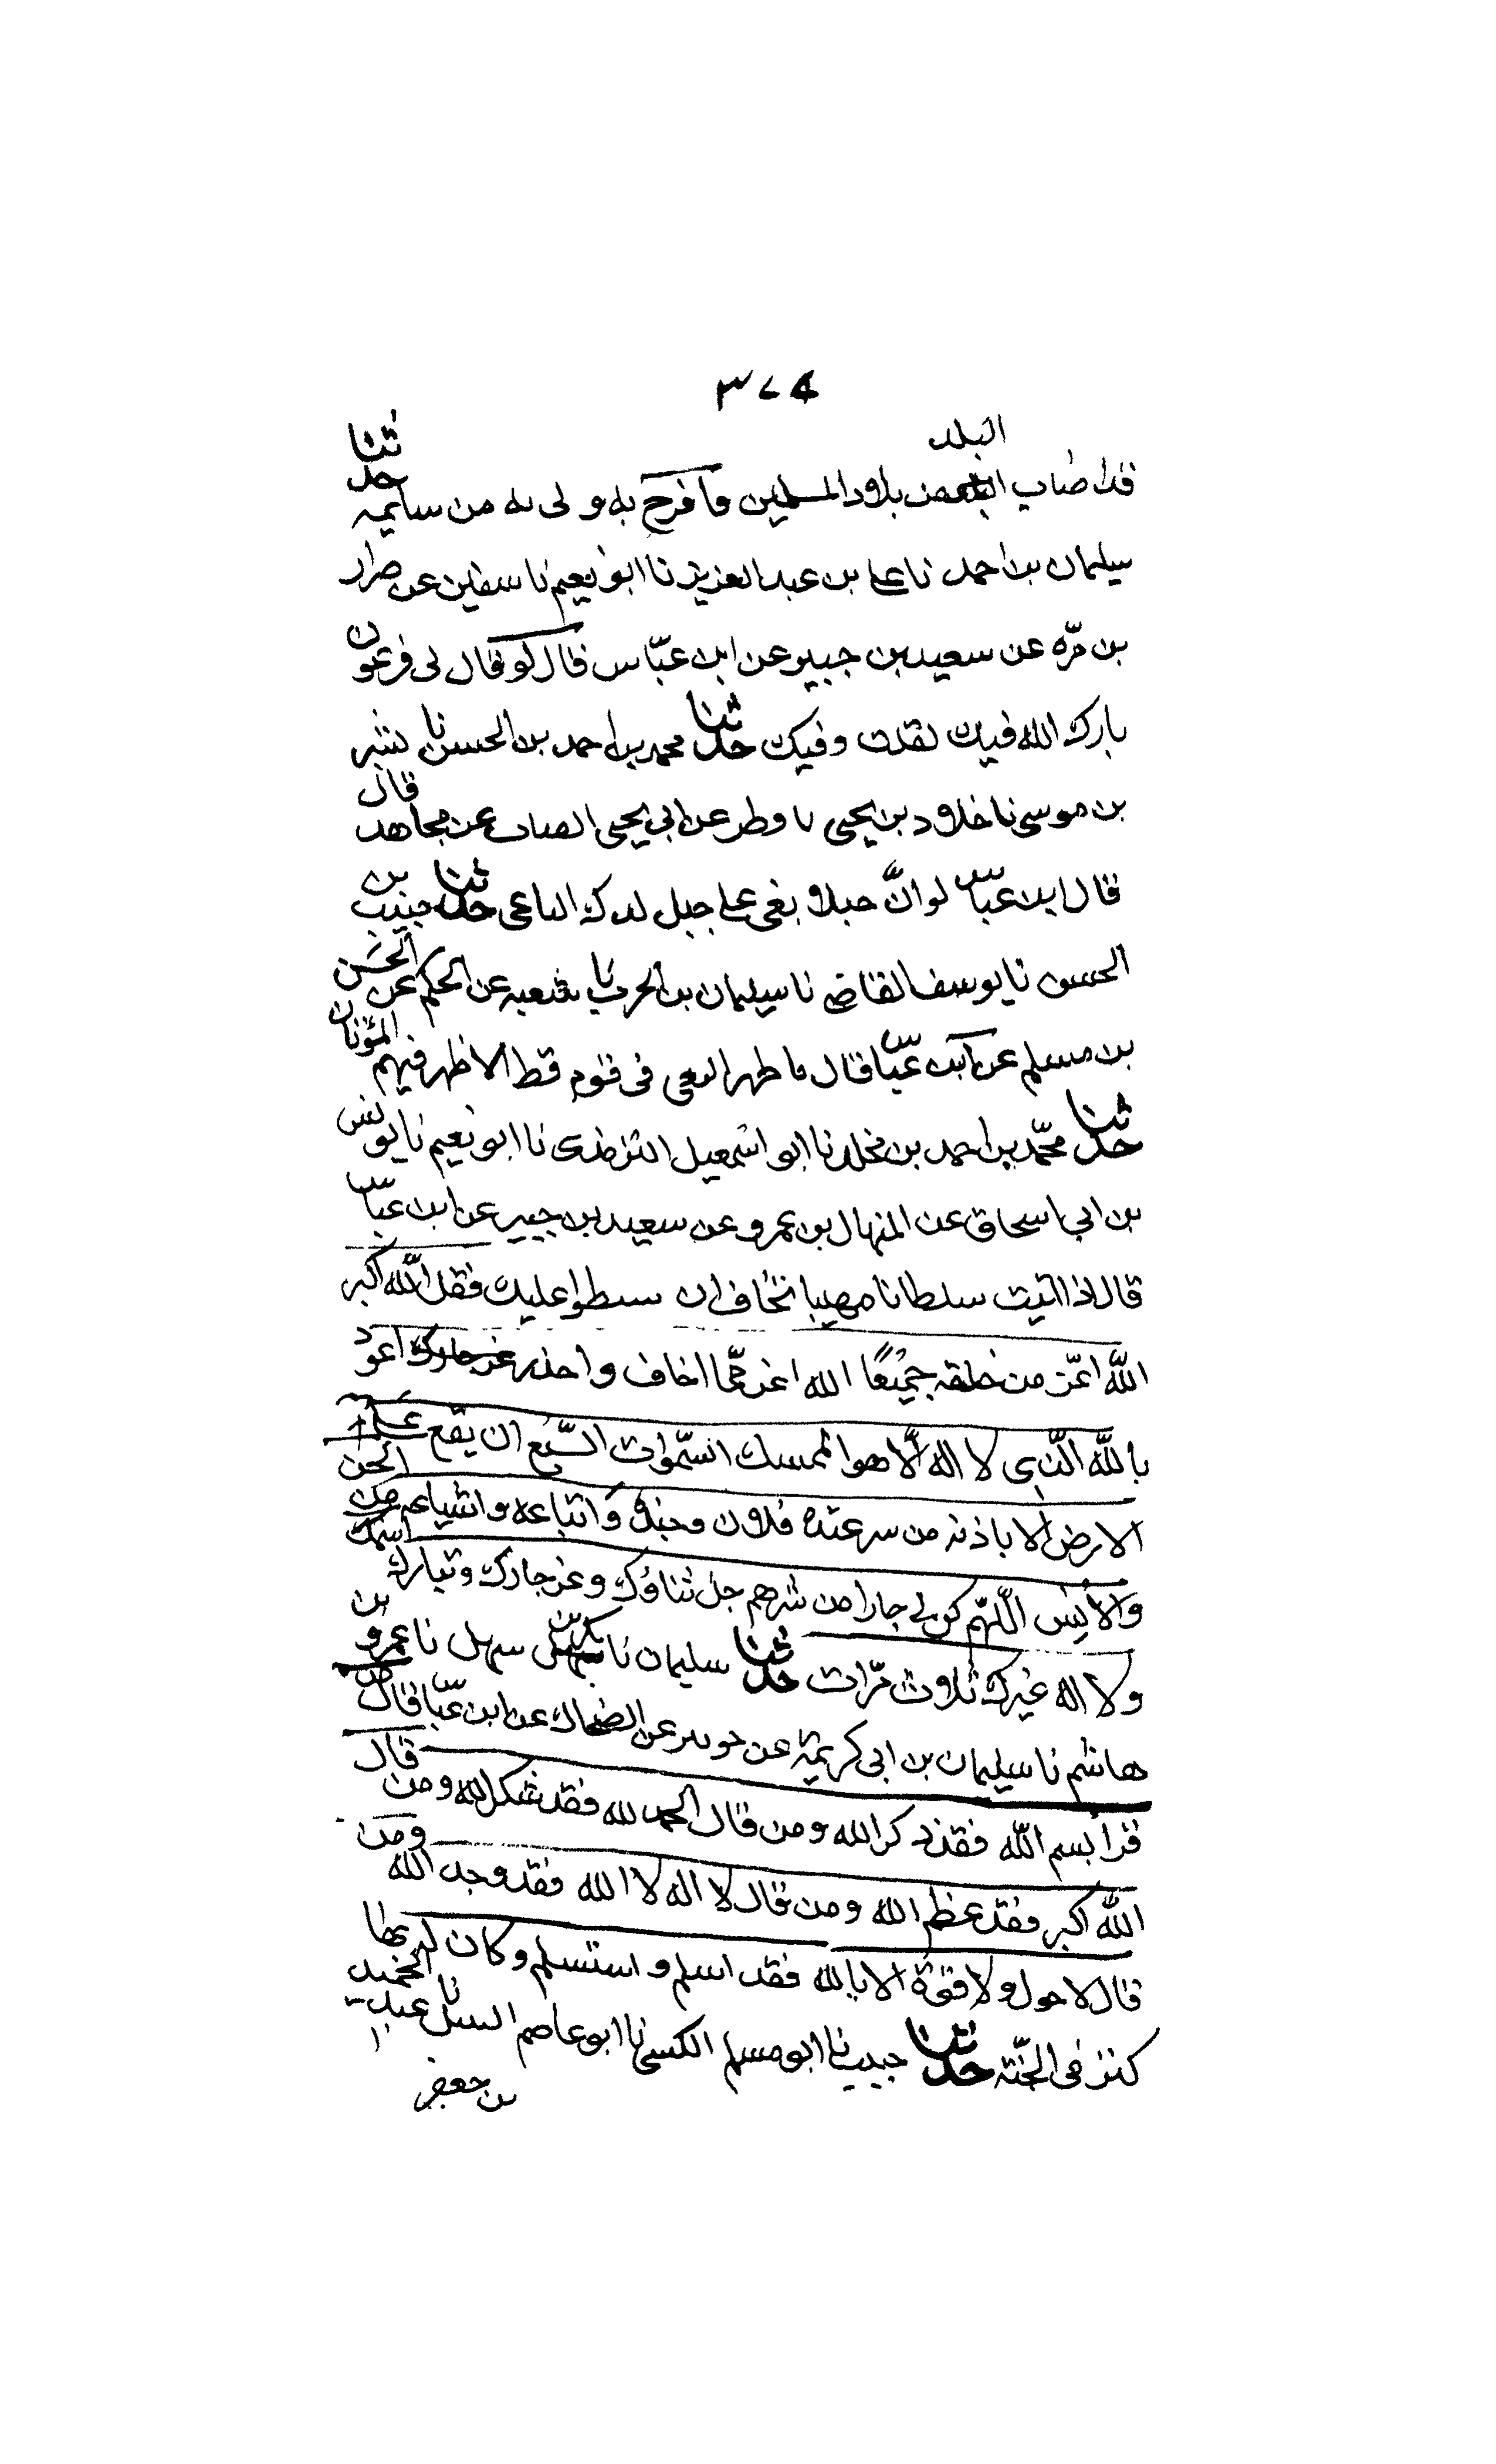 ٣٧٤
البلد
قد اصاب من بلاد المسلمين فافرح به و لى به من سايمه حدثنا
سيلمان بن احمد نا على بن عبد العزيز نا ابو نعيم نا سفين عن ضرار
بن مرّه عن سعيد بن جبير عن ابن عبّاس قال لو قال لى فرعون
بارك الله فيك لقلت وفيك حدثنا محمد بن احمد بن الحسن نا بشر
بن موسى نا خلاد بن يحيى نا فطر عن ابى يحيى عن مجاهد قال
قال ابن عباس لو انّ جبلا بغى على جبل لدك الباغى حدثنا حبيب بن
الحسن نا يوسف القاضى نا سيلمان بن الحرب نا شعبه عن الحكم عن الحسن
بن مسلم عن ابن عبّاس قال ما ظهر البغى فى قوم قط الا ظهر فيهم الموتان
حدثنا محمّد بن احمد بن مخلد نا ابو اسمعيل الترمذى نا ابو نعيم نا يونس
بن ابى اسحاق عن المنهال بن عمرو عن سعيد بن جبير عن ابن عبّاس
قال اذا اتيت سلطانا مهيبا تخاف ان سطوا عليك فقل اللّه اكبر
اللّه اعزّ من خلقه جميعًا الله اعز ممّا اخاف واحذر اعوذ
باللّه الّذى لا اله الّا هو الممسك السّموات السّبع ان يقع على
الارض الا باذنه من سر عبده فلان وجنده واتباعه واشياعه من الجن
والانس اللّهمّ كن لى جارا من شرهم جل ثناؤك وعز جارك وتبارك اسمك
ولا اله غيرك ثلاث مرّات حدثنا سليمان نا بكر بن سهل نا عمرو بن
هاشم نا سيلمان بن ابى كريمة عن جويبر عن الضحاك عن ابن عبّاس قال من
قرا بسم اللّه فقد ذكر الله ومن قال الحمد لله فقد شكر الله ومن قال
اللّه اكبر فقد عظم الله ومن قال لا اله الا الله فقد وحد الله ومن
قال لا حول ولا قوّة الا بالله فقد اسلم و استسلم وكان له بها
كنز فى الجنّة حدثنا حبيب نا ابو مسلم الكسى نا ابو عاصم النبيل نا عبد الحميد
بن جعفر